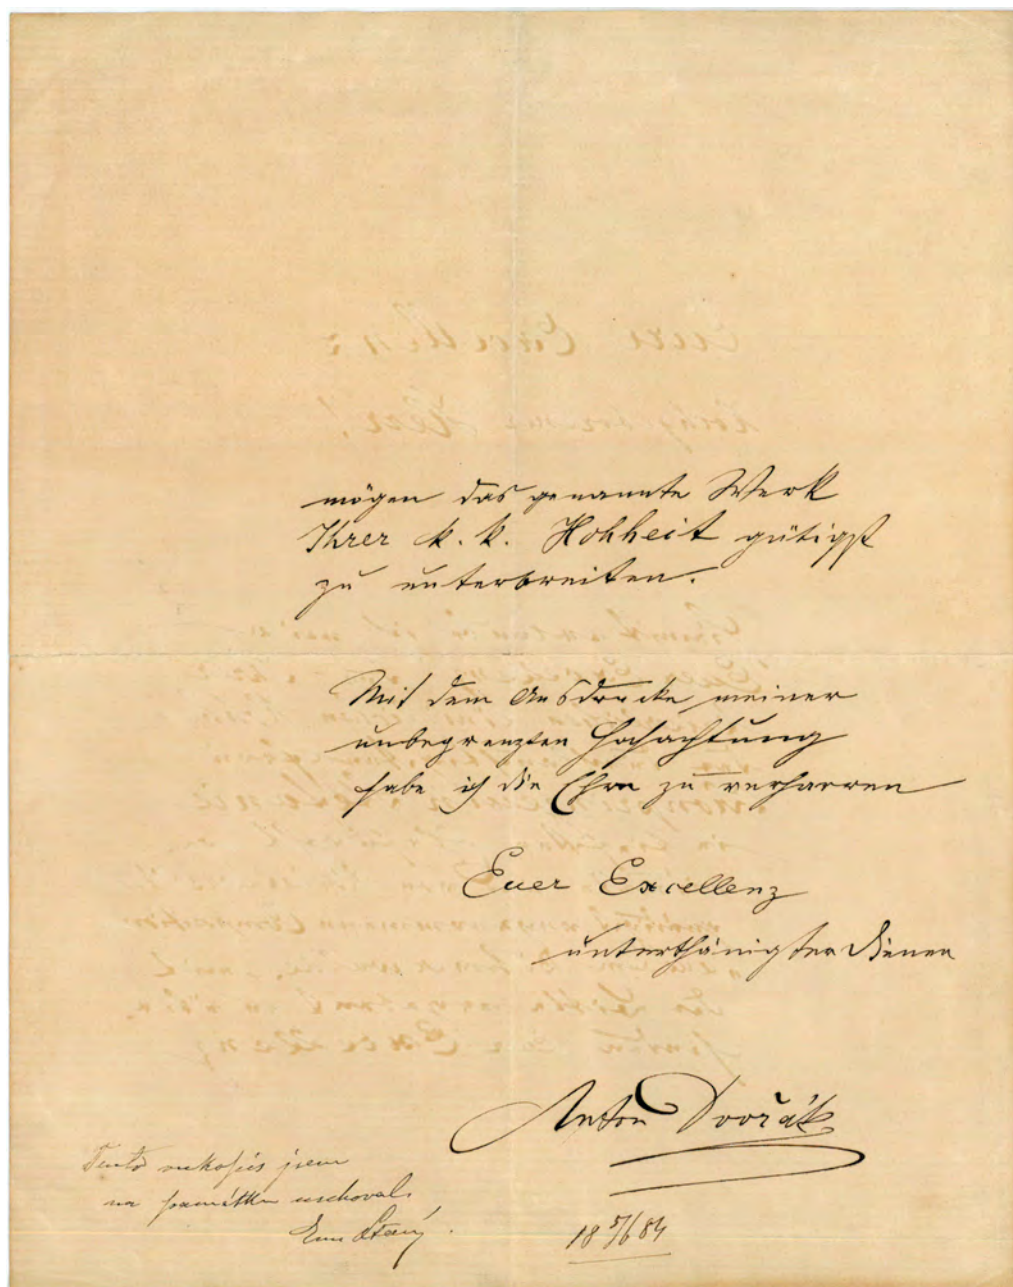 mögen das genannte Werk
Ihrer k. k. Hohheit gütigst
zu unterbreiten.
Mit dem Ausdrucke meiner
unbegrenzten Hochachtung
habe ich die Ehre zu verharren
Euer Excellenz
unterthänigster Diener
Anton Dvořák
Tento rukopis jsem
na památku uschoval.
18 5/6 84